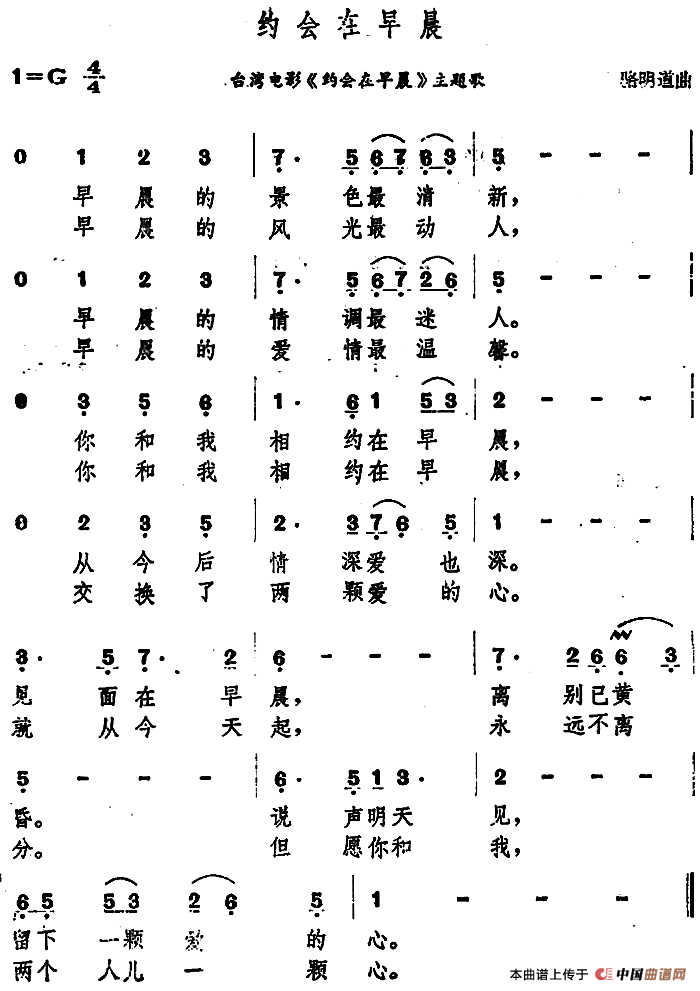 约会在早晨
1=G 4/4 台湾电影《约会在早晨》主题歌 骆明道曲
0 1 2 3 7· 5 6 7 6 3 5 - - -
早晨的景色最清新，
早晨的风光最动人，
0 1 2 3 7· 5 6 7 2 6 5 - - -
早晨的情调最迷人。
早晨的爱情最温馨。
0 3 5 6 1· 6 1 5 3 2 - - -
你和我相约在早晨，
你和我相约在早晨，
0 2 3 5 2· 3 7 6 5 1 - - -
从今后情深爱也深。
交换了两颗爱的心。
3· 5 7· 2 6 - - - 7· 2 6 6 3
见面在早晨，离别已黄
就从今天起，永远不离
5 - - - 6· 5 1 3· 2 - - -
昏。说声明天见，
分。但愿你和我，
6 5 5 3 2 6 5 1 - - -
留下一颗爱的心。
两个人儿一颗心。
本曲谱上传于 中国曲谱网